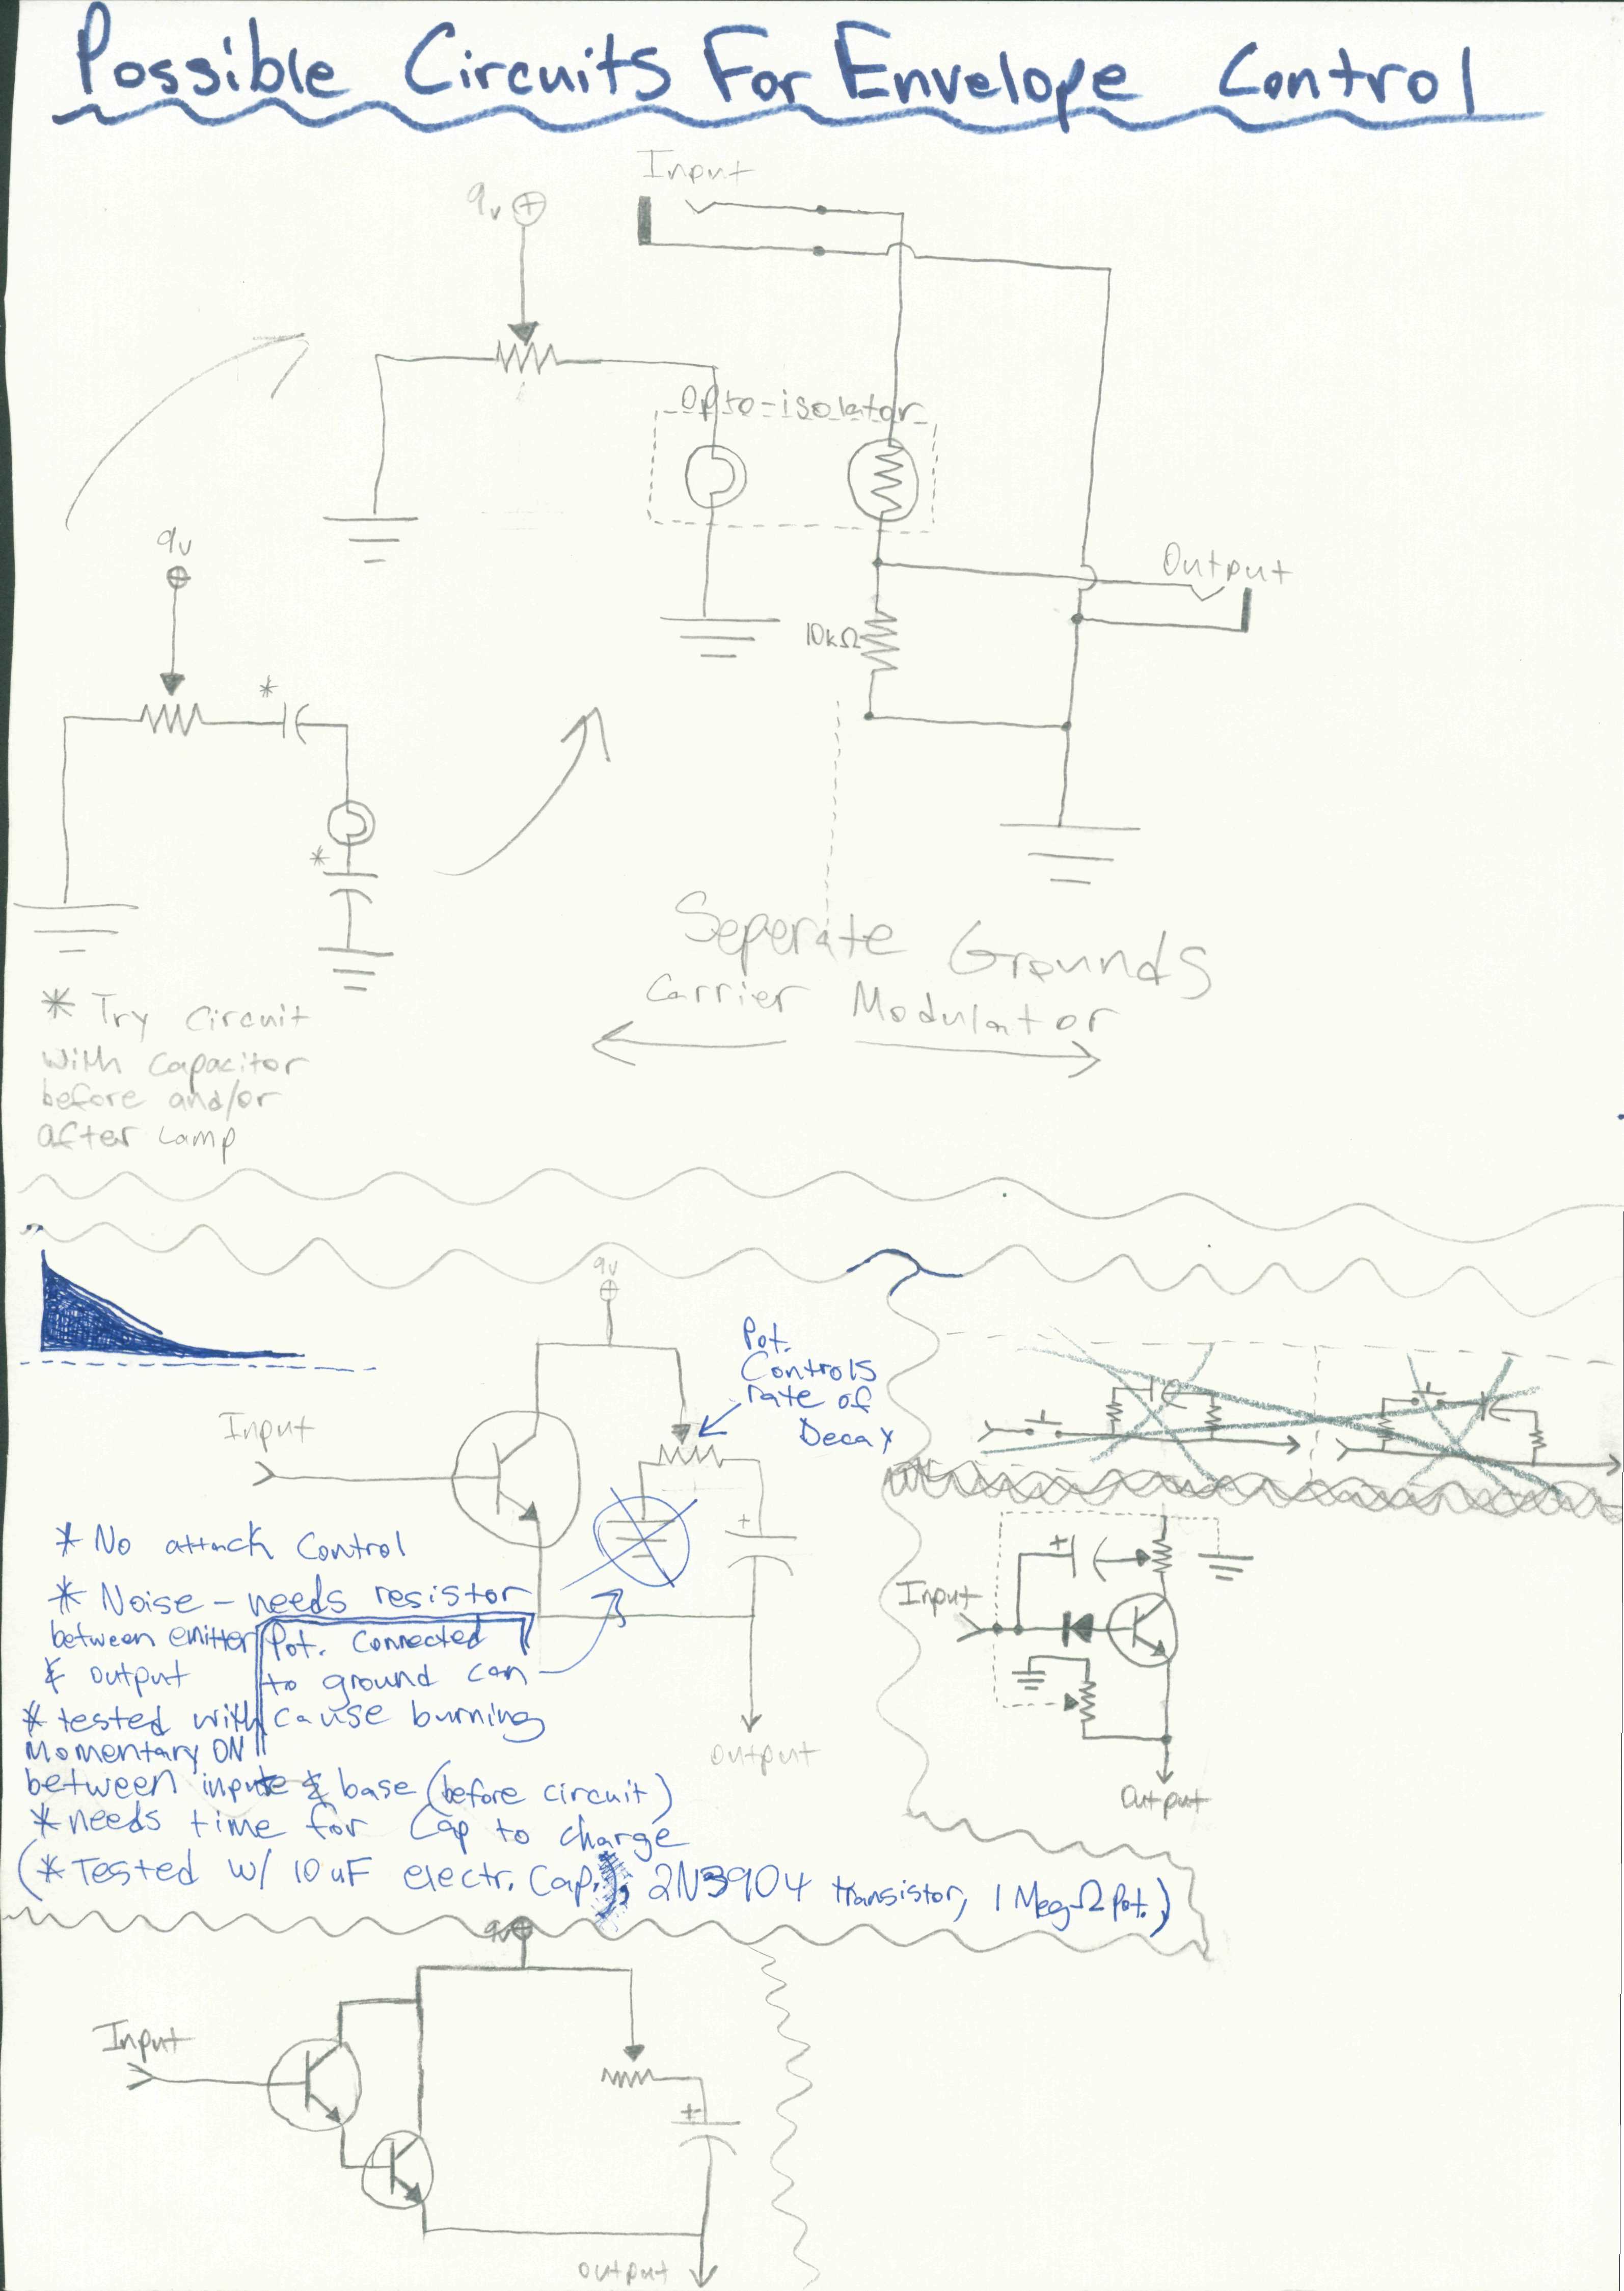 Possible Circuits For Envelope Control
Input
9v
Opto-isolator
9v
Output
10kΩ
*
*
Seperate Grounds
Carrier Modulator
* Try Circuit
With Capacitor
before and/or
after Lamp
9v
Pot.
Controls
rate of
Decay
Input
+
* No attack Control
* Noise - needs resistor
between emitter
& output
Pot. Connected
to ground can
cause burning
* tested with
Momentary ON
between input & base (before circuit)
* needs time for Cap to charge
(* Tested w/ 10uF electr. Cap.), 2N3904 transistor, 1 Meg-Ω Pot.)
Output
+
Input
Output
9v
Input
+
Output